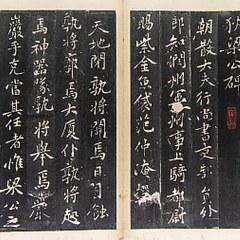 狄梁公碑
朝散大夫行尚書吏部員外
郎知潤州軍州事上騎都尉
賜紫金魚袋范仲淹撰
天地閉孰將闢焉日月蝕
孰將廓焉大厦仆孰將起
焉神器墜孰將舉焉巖
巖乎克當其任者惟梁公之